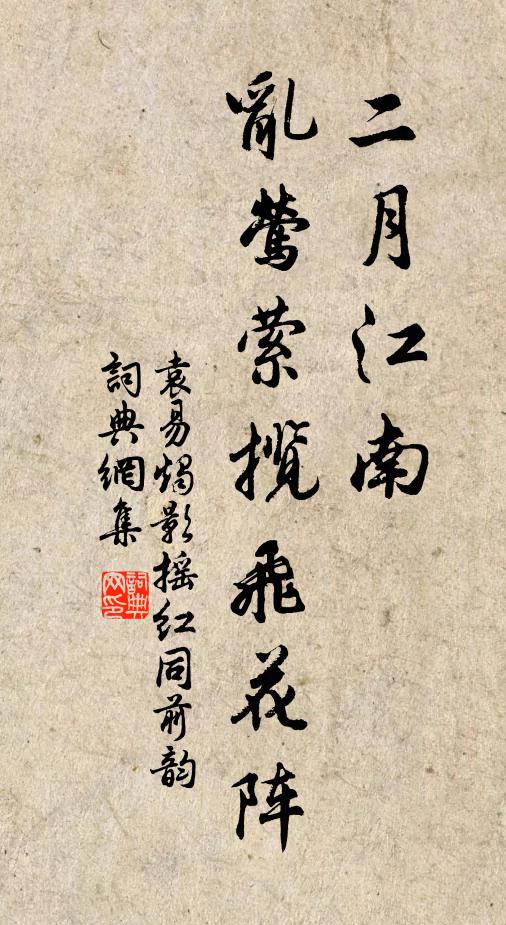 二月江南
亂鶯縈攬飛花阵
袁易燭影摇红同前韵
詞典網集
詞典网印